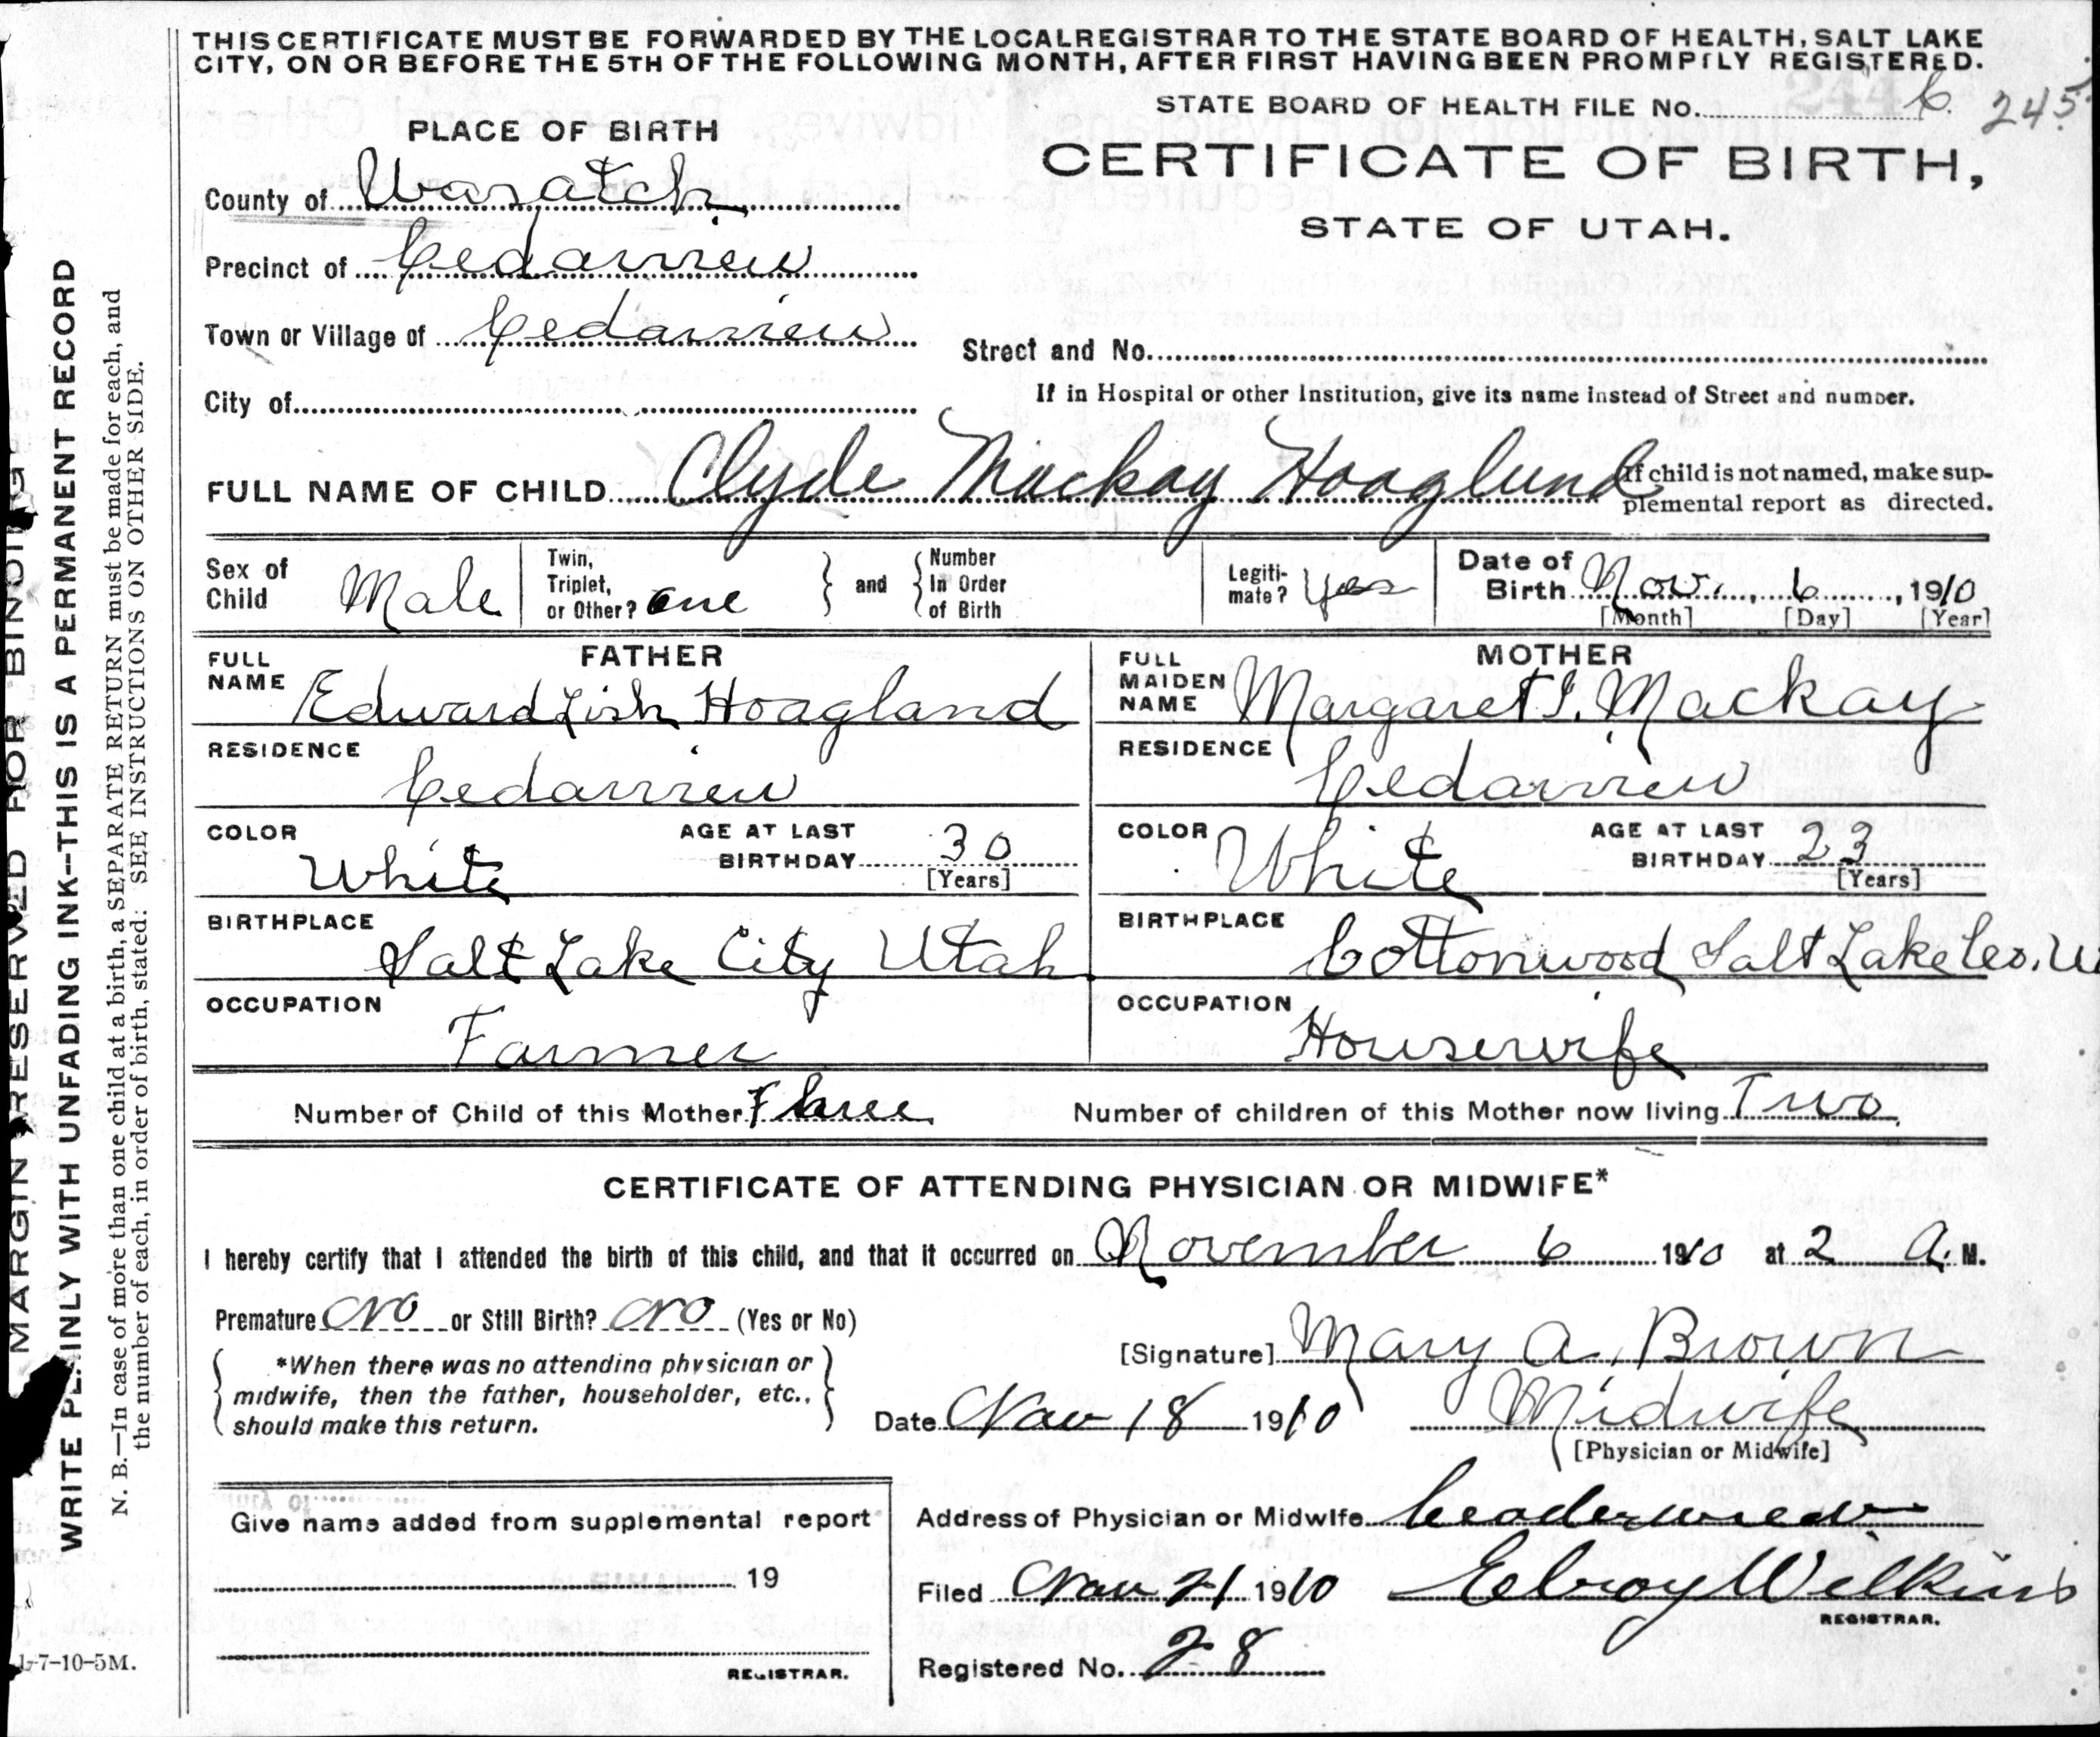 THIS CERTIFICATE MUST BE FORWARDED BY THE LOCAL REGISTRAR TO THE STATE BOARD OF HEALTH, SALT LAKE
CITY, ON OR BEFORE THE 5TH OF THE FOLLOWING MONTH, AFTER FIRST HAVING BEEN PROMPTLY REGISTERED.
STATE BOARD OF HEALTH FILE No. 6 245
PLACE OF BIRTH
CERTIFICATE OF BIRTH,
STATE OF UTAH.
County of Wasatch
Precinct of Cedarview
Town or Village of Cedarview
Street and No.
City of
If in Hospital or other Institution, give its name instead of Street and number.
FULL NAME OF CHILD Clyde Mackay Hoaglund
If child is not named, make sup-
plemental report as directed.
Sex of Child Male
Twin, Triplet, or Other? one
and Number In Order of Birth
Legiti-mate? yes
Date of Birth Nov., 6, 1910
[Month] [Day] [Year]
FATHER
FULL NAME Edward Lish Hoagland
RESIDENCE Cedarview
COLOR White
AGE AT LAST BIRTHDAY 30 [Years]
BIRTHPLACE Salt Lake City Utah
OCCUPATION Farmer
MOTHER
FULL MAIDEN NAME Margaret I. Mackay
RESIDENCE Cedarview
COLOR White
AGE AT LAST BIRTHDAY 23 [Years]
BIRTHPLACE Cottonwood Salt Lake Co. U
OCCUPATION Housewife
Number of Child of this Mother Three Number of children of this Mother now living Two
CERTIFICATE OF ATTENDING PHYSICIAN OR MIDWIFE*
I hereby certify that I attended the birth of this child, and that it occurred on November 6 1910 at 2 A. M.
Premature No or Still Birth? No (Yes or No)
[Signature] Mary A. Brown
*When there was no attending physician or
midwife, then the father, householder, etc.,
should make this return.
Date Nov 18 1910 Midwife
[Physician or Midwife]
Give name added from supplemental report
19
REGISTRAR.
Address of Physician or Midwife Ceaderview
Filed Nov 21 1910 Elroy Wilkins
REGISTRAR.
Registered No. 28
1-7-10-5M.
MARGIN RESERVED FOR BINDING
WRITE PLAINLY WITH UNFADING INK--THIS IS A PERMANENT RECORD
N. B.—In case of more than one child at a birth, a SEPARATE RETURN must be made for each, and
the number of each, in order of birth, stated: SEE INSTRUCTIONS ON OTHER SIDE.